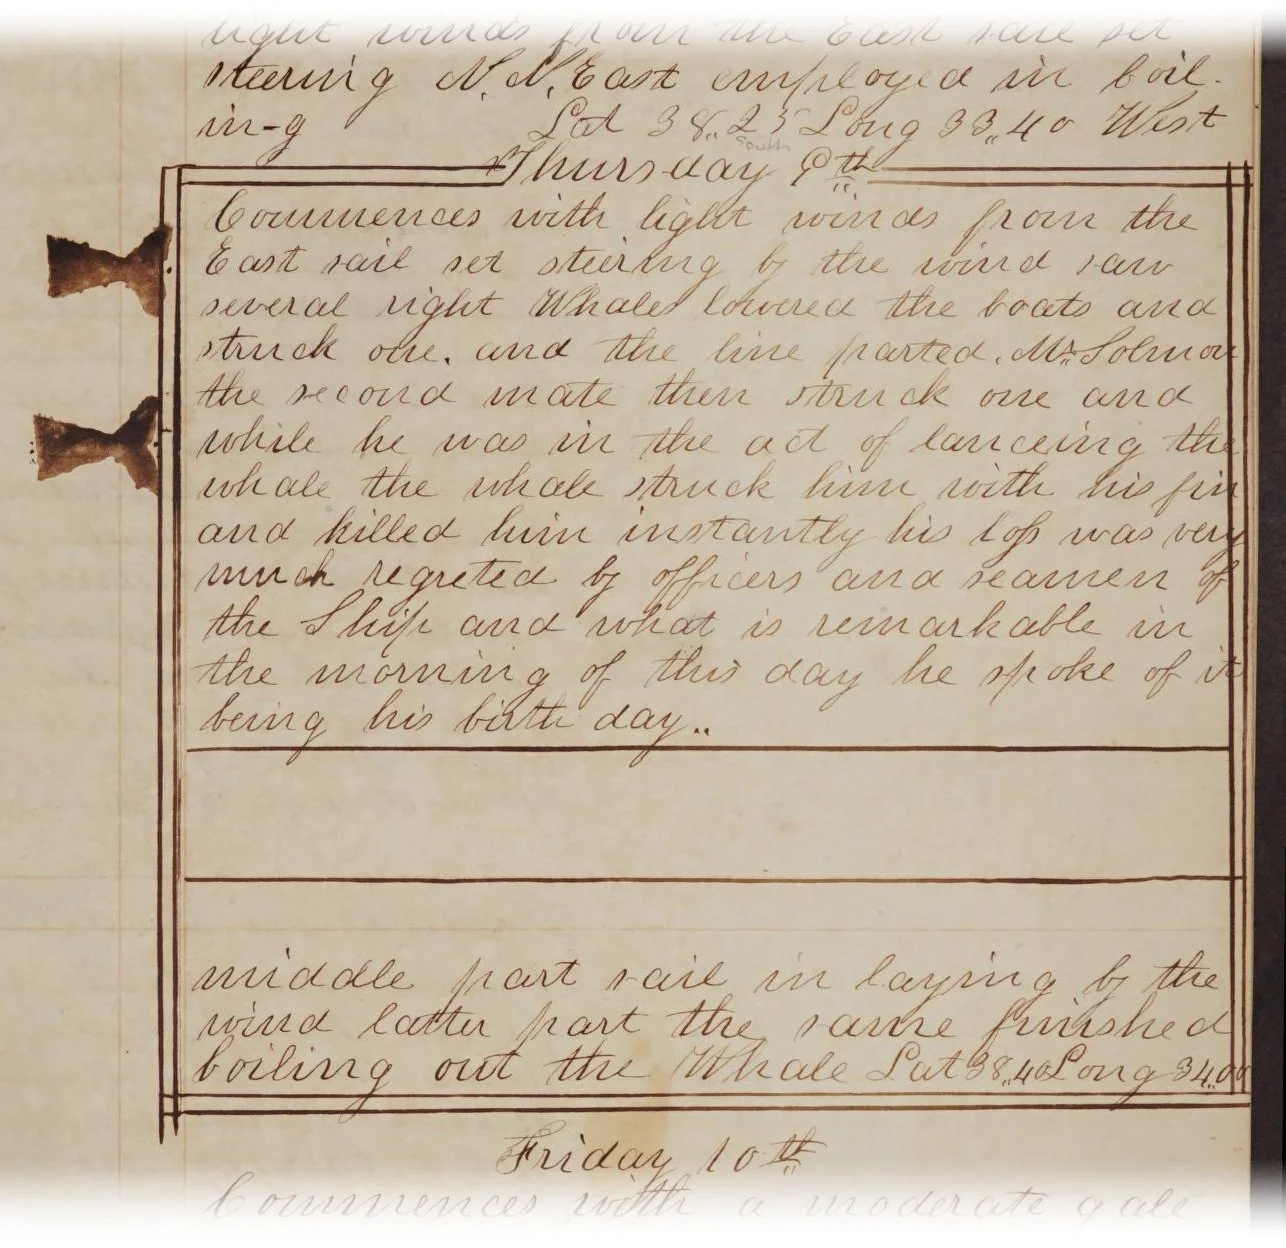 light winds from the East sail set
steering N.N.East employed in boil-
in-g Lat 38,,25 Long 33,,40 West
South
Thursday 9th
Commences with light winds from the
East sail set steering by the wind saw
several right Whales lowered the boats and
struck one. and the line parted. Mr Solmon
the second mate then struck one and
while he was in the act of lanceing the
whale the whale struck him with his fin
and killed him instantly his loſs was very
much regreted by officers and seamen of
the Ship and what is remarkable in
the morning of this day he spoke of it
being his birth day..
middle part sail in laying by the
wind latter part the same finished
boiling out the Whale Lat 38,,40 Long 34,,00
Friday 10th
Commences with a moderate gale